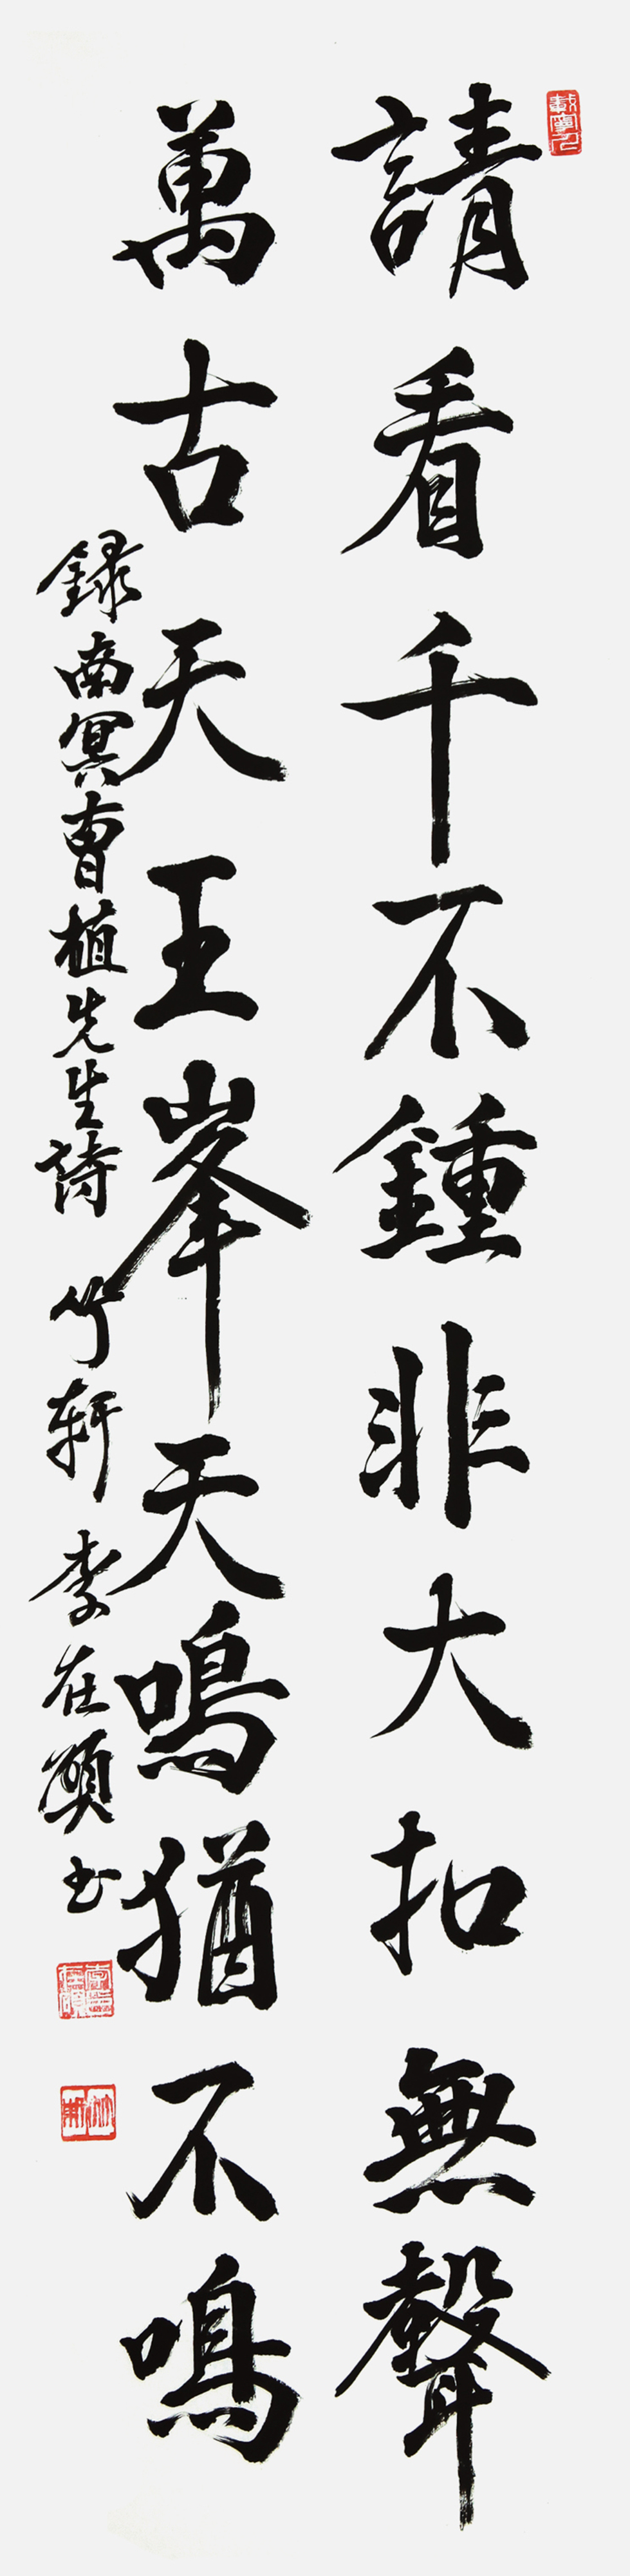 請看千不鍾非大扣無聲
萬古天王峯天鳴猶不鳴
録南冥曺植先生詩 竹軒 李在書